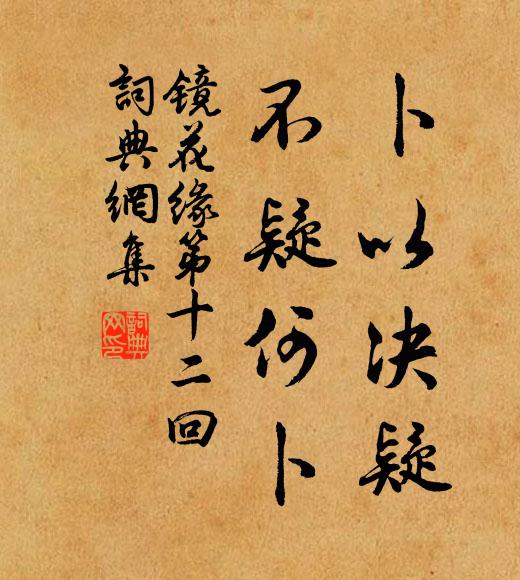 卜以决疑
不疑何卜
镜花缘第十二回
詞典網集
詞典
网印